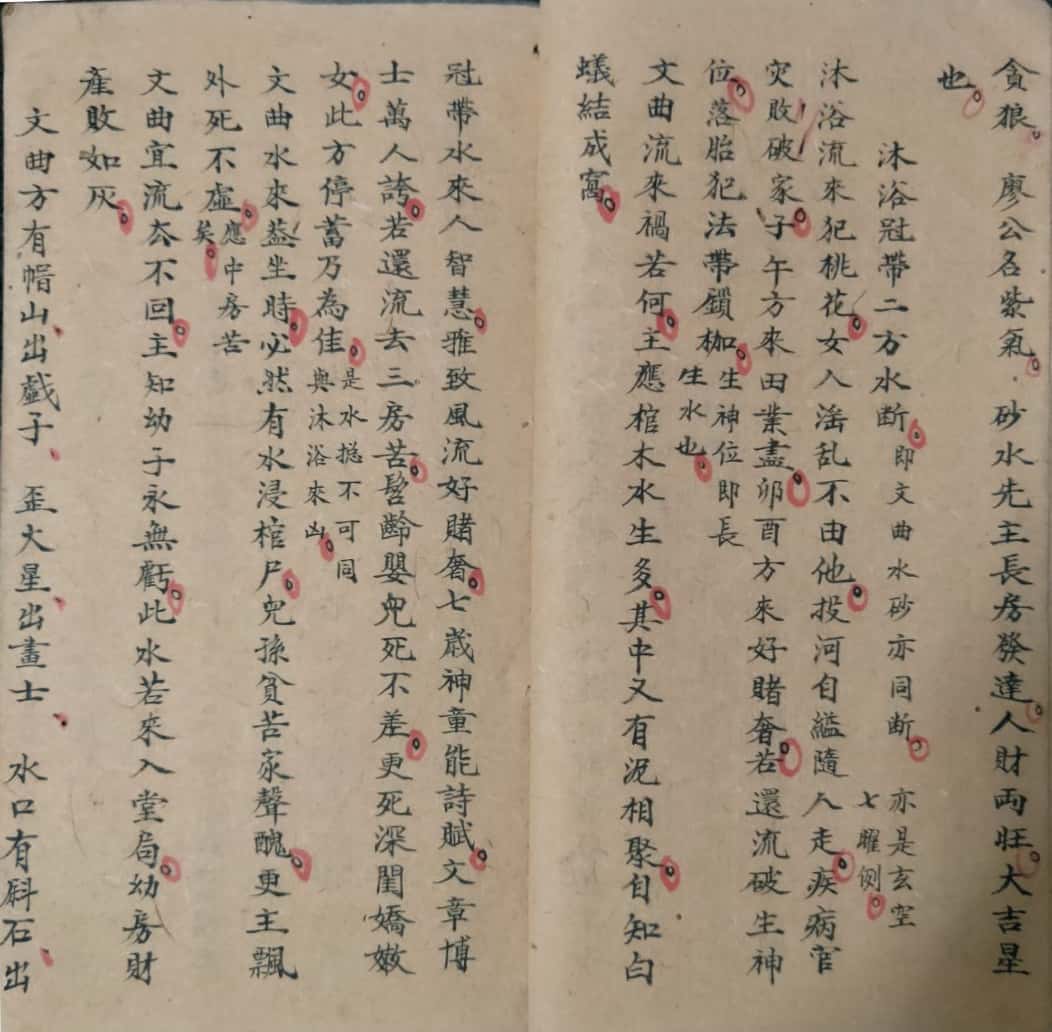 貪狼。廖公名紫氣。砂水先主長房發達。人財両旺。大吉星
也。
沐浴冠帶二方水断。即文曲水砂亦同断。亦是玄空
七曜例。
沐浴流來犯桃花。女人淫乱不由他。投河自縊隨人走。疾病官
灾敗破家。子午方來田業盡。卯酉方來好賭奢。若還流破生神
位。落胎犯法帶鎖枷。生神位即長
生水也。
文曲流來禍若何。主應棺木水生多。其中又有泥相聚。自知白
蟻結成窩。
冠帶水來人智慧。雅致風流好賭奢。七歲神童能詩賦。文章博
士萬人誇。若還流去三房苦。髫齡嬰兒死不差。更死深閨嬌嫩
女。此方停蓄乃為佳。是水搃不可同
與沐浴來凶。
文曲水來葢坐時。必然有水浸棺尸。兒孫貧苦家聲醜。更主飄
外死不虛。應中房苦
矣。
文曲宜流去不回。主知幼子永無虧。此水若來入堂局。幼房財
產敗如灰。
文曲方有帽山、出戲子、歪火星、出畫士、水口有斜石、出